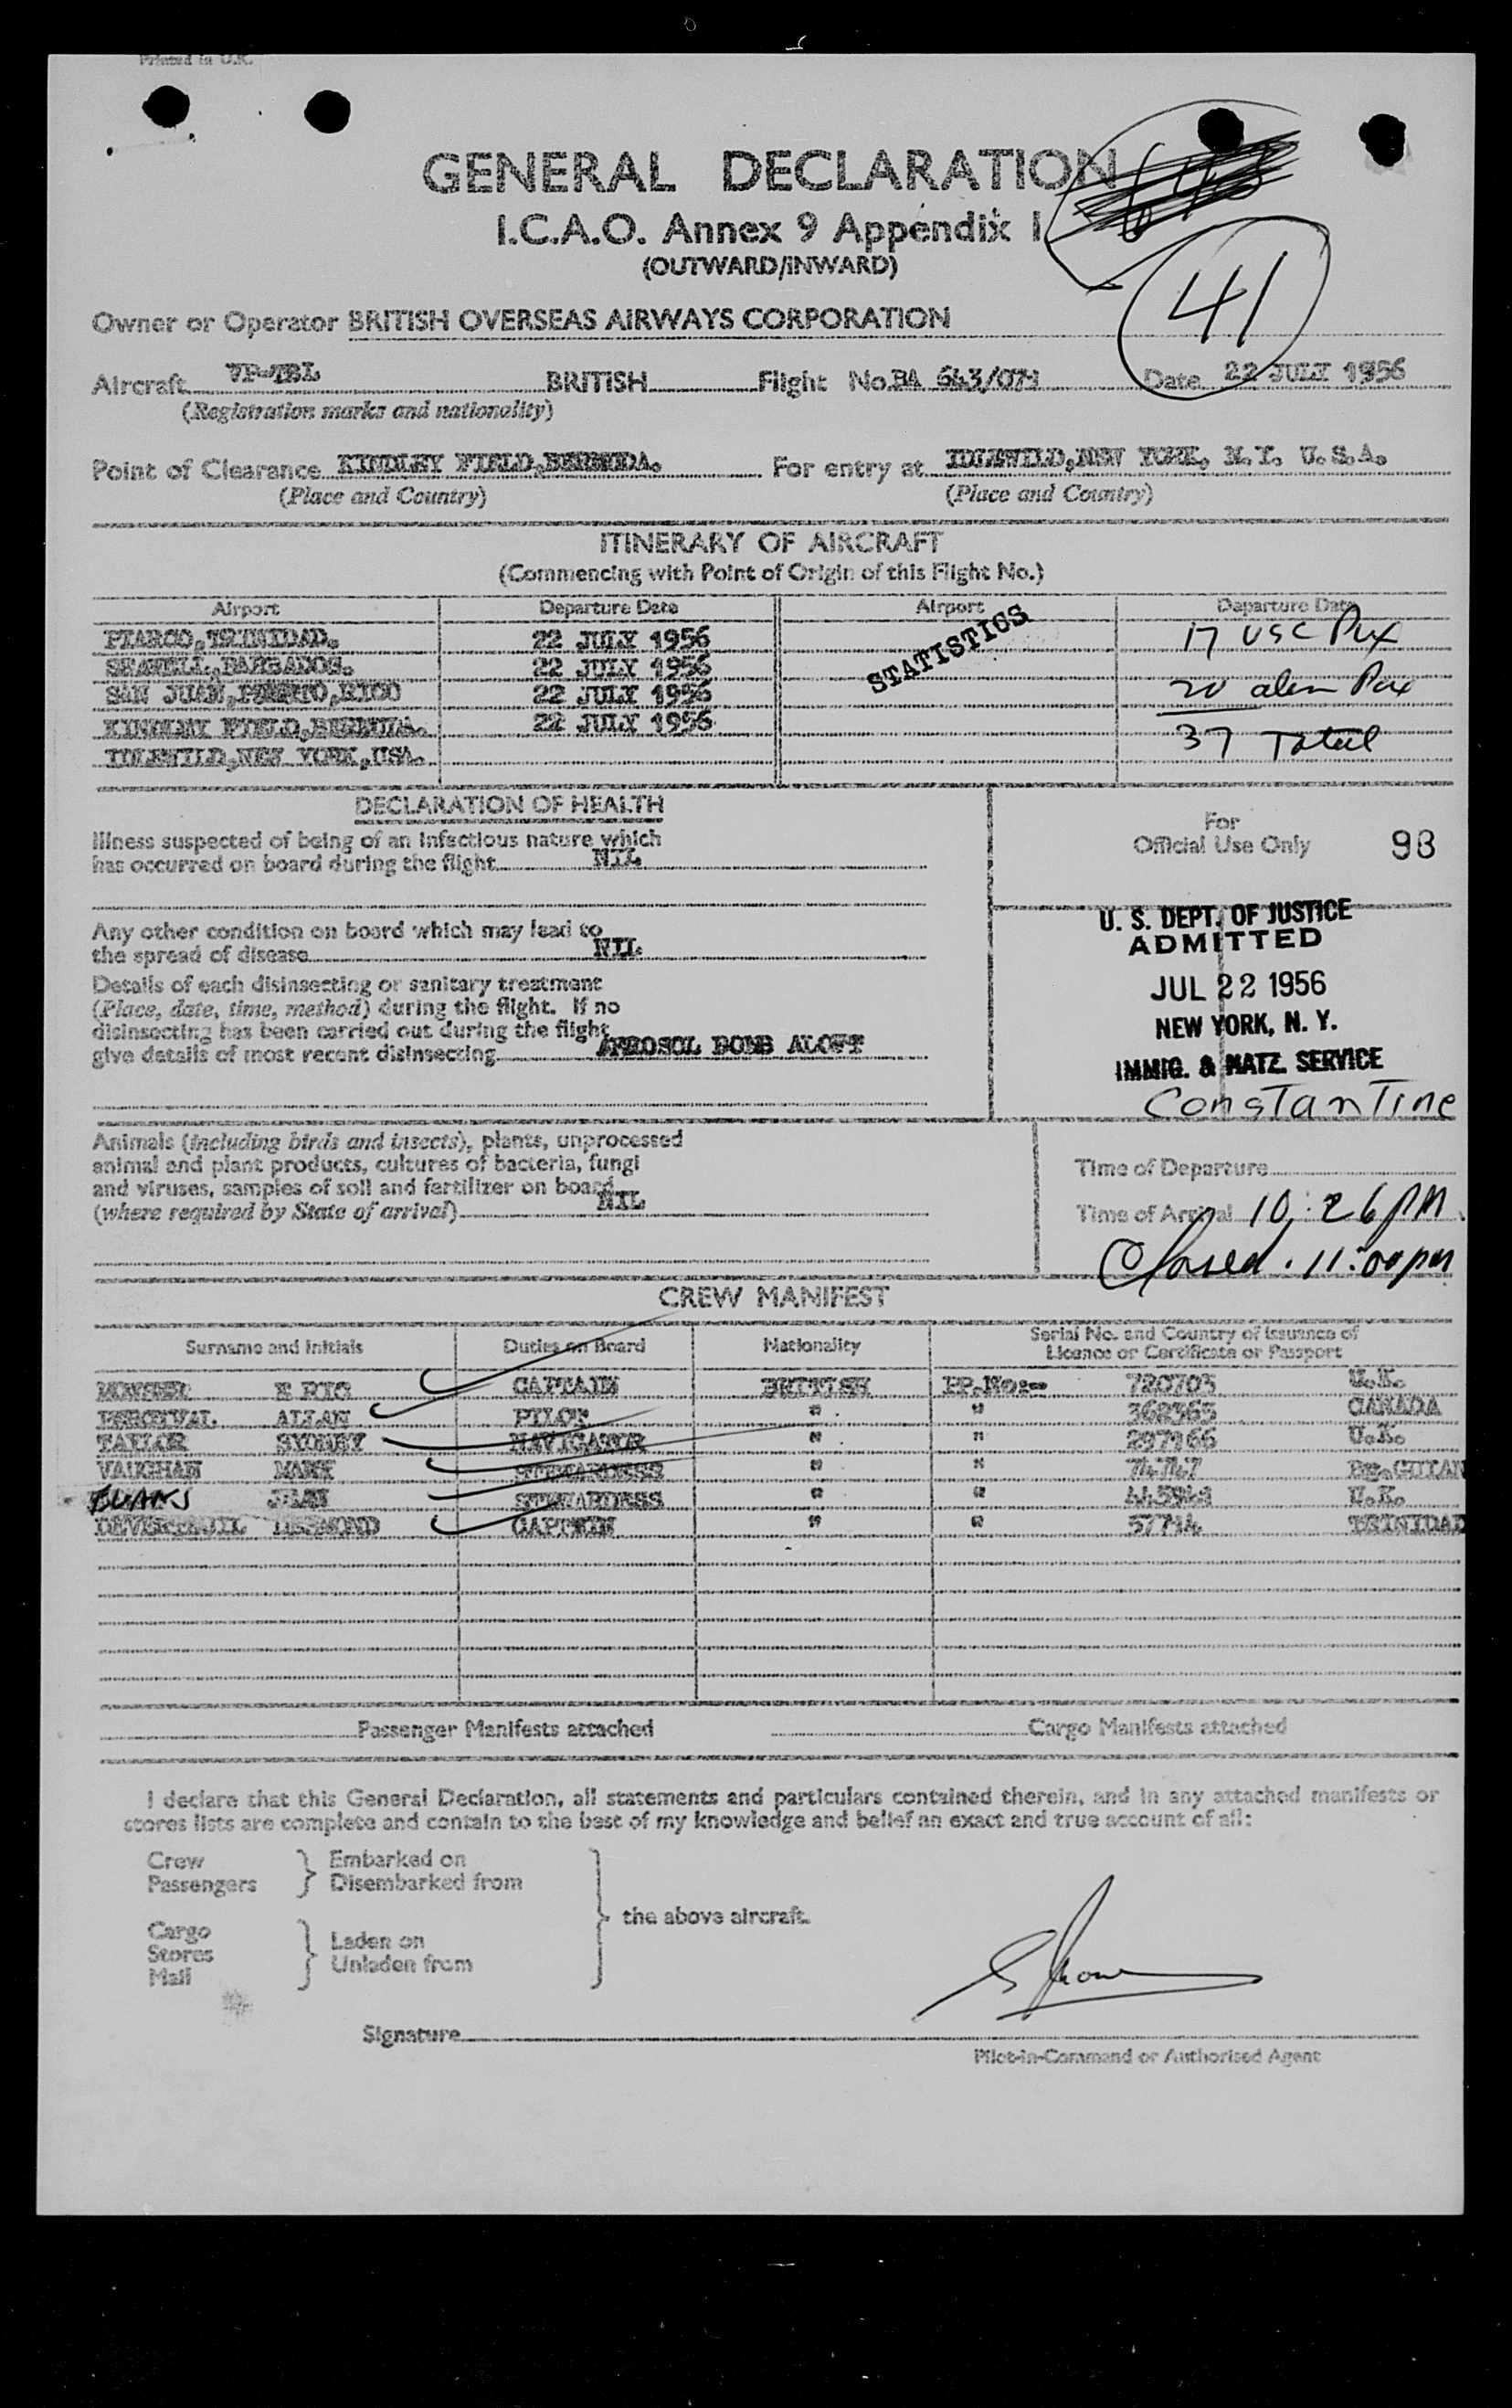 Printed in U.K.
GENERAL DECLARATION
I.C.A.O. Annex 9 Appendix I
(OUTWARD/INWARD)
41
Owner or Operator BRITISH OVERSEAS AIRWAYS CORPORATION
Aircraft VP-TBL BRITISH Flight No. BA 643/071 Date 22 JULY 1956
(Registration marks and nationality)
Point of Clearance KINDLEY FIELD,BERMUDA. For entry at IDLEWILD,NEW YORK, N.Y. U.S.A.
(Place and Country) (Place and Country)
ITINERARY OF AIRCRAFT
(Commencing with Point of Origin of this Flight No.)
Airport Departure Date Airport Departure Date
PIARCO,TRINIDAD. 22 JULY 1956 STATISTICS 17 USC Pax
SEAWELL,BARBADOS. 22 JULY 1956
SAN JUAN,PUERTO,RICO 22 JULY 1956 20 alien Pax
KINDLEY FIELD,BERMUDA. 22 JULY 1956
IDLEWILD,NEW YORK,USA. 37 Total
DECLARATION OF HEALTH
Illness suspected of being of an infectious nature which
has occurred on board during the flight NIL
For
Official Use Only 98
Any other condition on board which may lead to
the spread of disease NIL
Details of each disinsecting or sanitary treatment
(Place, date, time, method) during the flight. If no
disinsecting has been carried out during the flight
give details of most recent disinsecting AEROSOL BOMB ALOFT
U. S. DEPT. OF JUSTICE
ADMITTED
JUL 22 1956
NEW YORK, N. Y.
IMMIG. & NATZ. SERVICE
Constantine
Animals (including birds and insects), plants, unprocessed
animal and plant products, cultures of bacteria, fungi
and viruses, samples of soil and fertilizer on board
(where required by State of arrival) NIL
Time of Departure
Time of Arrival 10:26 PM
Closed. 11:00 pm
CREW MANIFEST
Surname and Initials Duties on Board Nationality Serial No. and Country of Issuance of
Licence or Certificate or Passport
ERIC CAPTAIN BRITISH PP.No:- 720703 U.K.
PERCIVAL ALLAN PILOT " " 368365 CANADA
TAYLOR SYDNEY NAVIGATOR " " 297166 U.K.
VAUGHAN MARY STEWARDESS " " 74747 Br.GUIAN
EVANS JEAN STEWARDESS " " U.K.
DESMOND CAPTAIN " " 57714 TRINIDAD
Passenger Manifests attached Cargo Manifests attached
I declare that this General Declaration, all statements and particulars contained therein, and in any attached manifests or
stores lists are complete and contain to the best of my knowledge and belief an exact and true account of all:
Crew Embarked on
Passengers Disembarked from
the above aircraft.
Cargo Laden on
Stores Unladen from
Mail
Signature
Pilot-in-Command or Authorised Agent